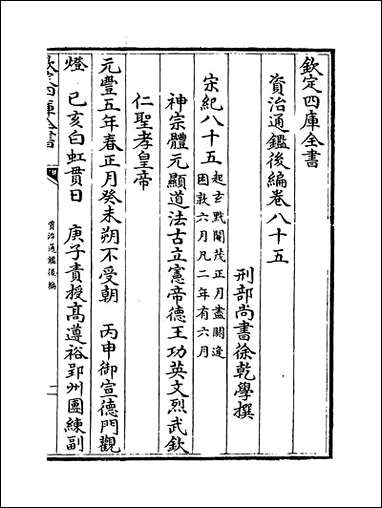 欽定四庫全書
資治通鑑後編卷八十五
刑部尚書徐乾學撰
宋紀八十五
起玄黓閹茂正月盡閼逢
困敦六月凡二年有六月
神宗體元顯道法古立憲帝德王功英文烈武欽
仁聖孝皇帝
元豐五年春正月癸未朔不受朝　丙申御宣德門觀
燈　己亥白虹貫日　庚子責授髙遵裕郢州團練副
欽定四庫全書
資治通鑑後編